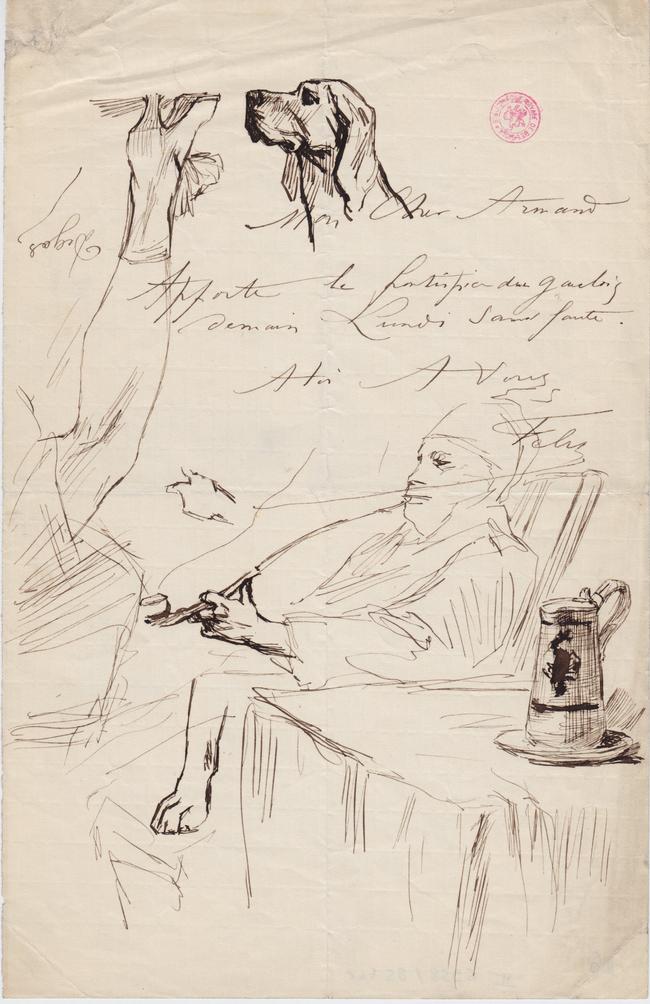 Mon Cher Armand
Apporte le du gaulois
demain Lundi sans faute.
A toi A Vous